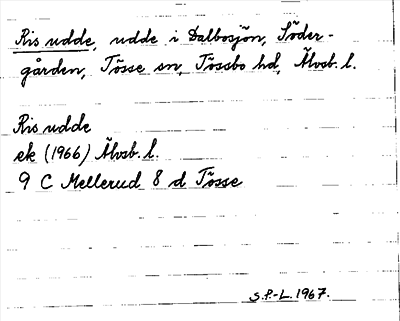 Ris udde, udde i Dalbosjön, Söder-
gården, Tösse sn, Tössbo hd, Älvsb. l.
Ris udde
ek (1966) Älvsb. l.
9 C Mellerud 8 d Tösse
S.P.-L. 1967.